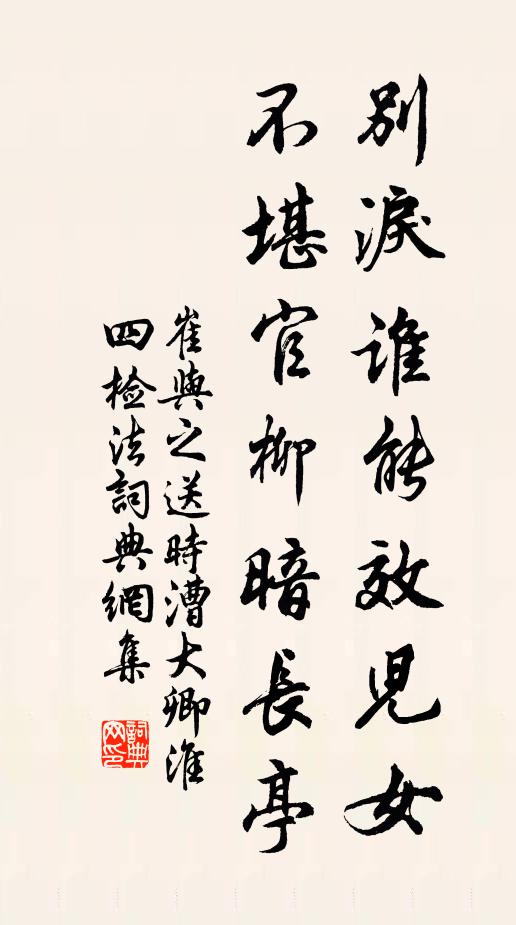 別淚誰能效兒女
不堪官柳暗長亭
崔與之送時漕大卿淮
四檢法詞典網集
詞典網印